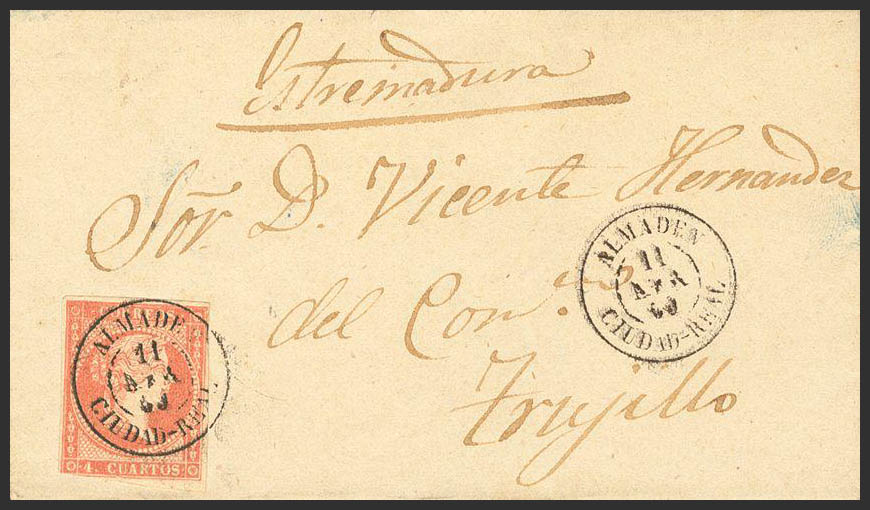 Estremadura
Sor. D. Vicente Hernandez
del Com.º
Trujillo
ALMADEN
11
ABR
60
CIUDAD-REAL
ALMADEN
11
ABR
60
CIUDAD-REAL
4. CUARTOS